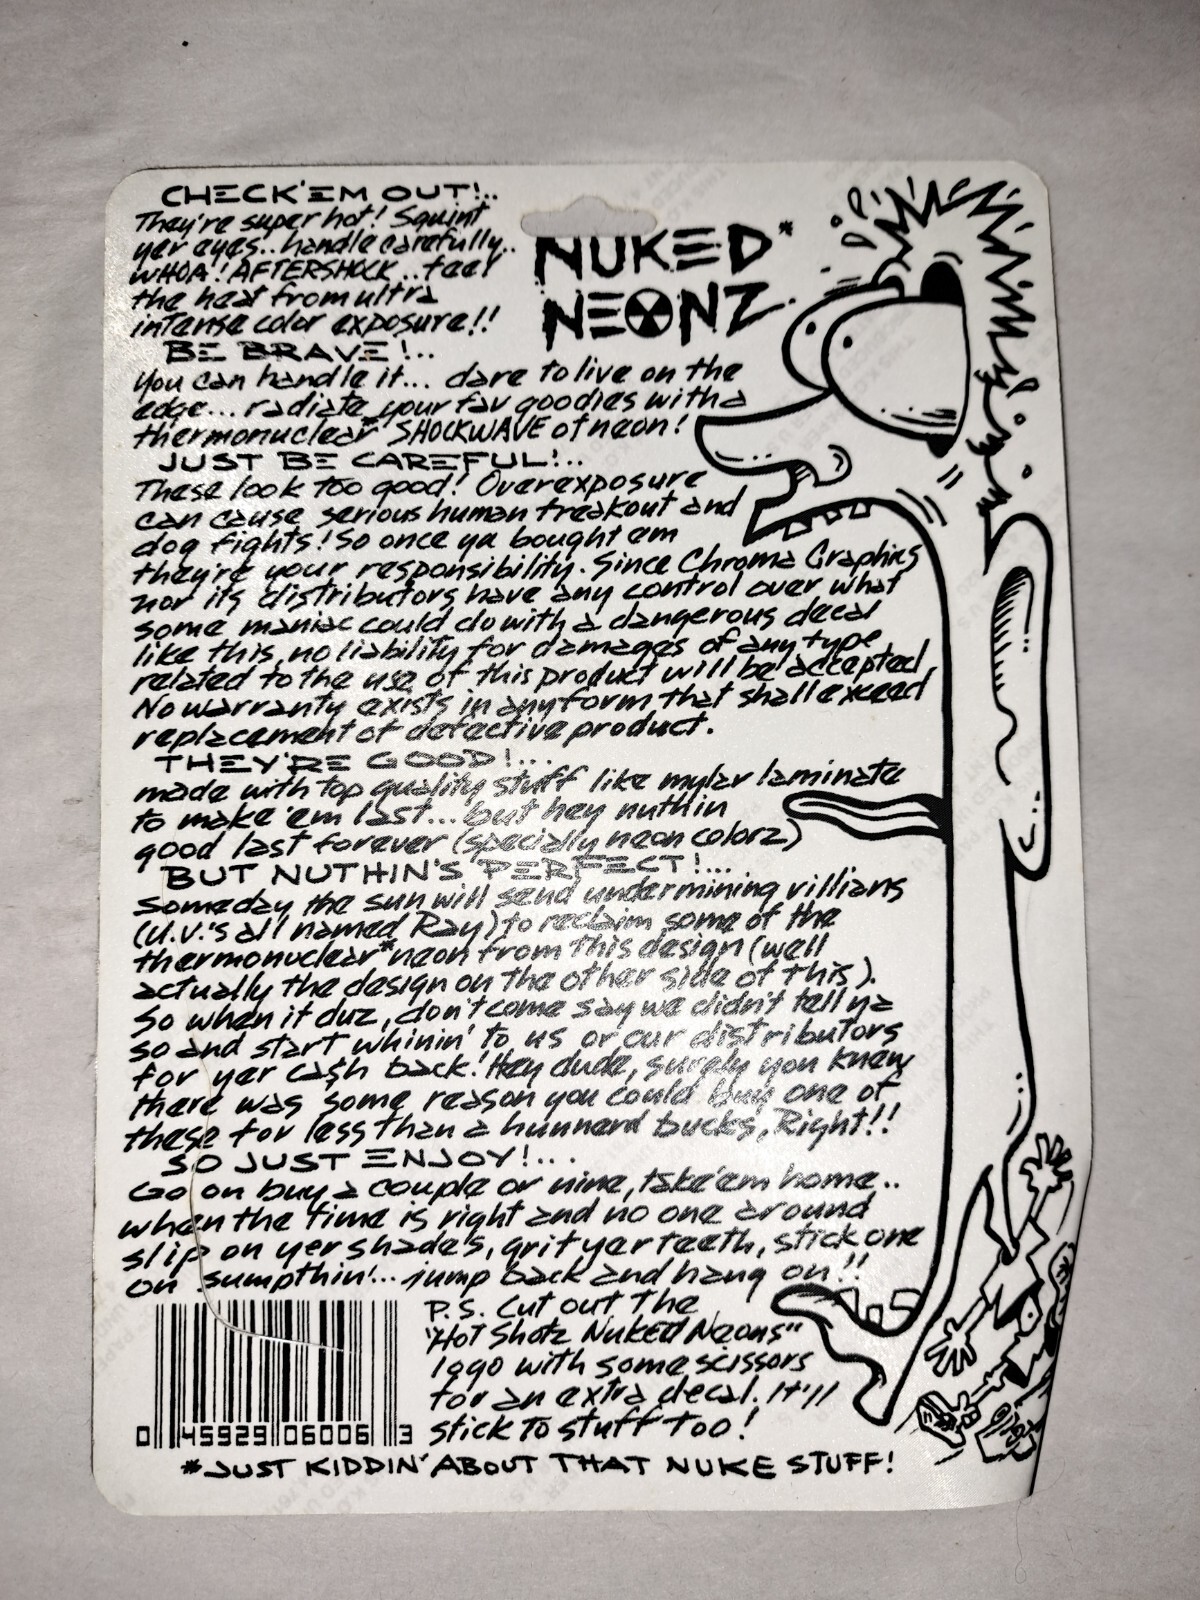 CHECK'EM OUT!..
They're super hot! Squint
yer eyes.. handle carefully..
WHOA! AFTERSHOCK.. feel
the heat from ultra
intense color exposure!!
NUKED*
NEONZ
BE BRAVE!..
You can handle it... dare to live on the
edge... radiate your fav goodies with a
thermonuclear* SHOCKWAVE of neon!
JUST BE CAREFUL!..
These look too good! Overexposure
can cause serious human freakout and
dog fights! So once ya bought em
they're your responsibility. Since Chroma Graphics
nor its distributors have any control over what
some maniac could do with a dangerous decal
like this, no liability for damages of any type
related to the use of this product will be accepted.
No warranty exists in any form that shall exceed
replacement of defective product.
THEY'RE GOOD!...
made with top quality stuff like mylar laminate
to make 'em last... but hey nuthin
good last forever (specially neon colorz)
BUT NUTHIN'S PERFECT!...
Someday the sun will send undermining villians
(U.V.'s all named Ray) to reclaim some of the
thermonuclear* neon from this design (well
actually the design on the other side of this).
So when it duz, don't come say we didn't tell ya
so and start whinin' to us or our distributors
for yer cash back! Hey dude, surely you knew
there was some reason you could buy one of
these for less than a hunnerd bucks, Right!!
SO JUST ENJOY!...
Go on buy a couple or nine, take'em home..
when the time is right and no one around
slip on yer shades, grit yer teeth, stick one
on sumpthin'... jump back and hang on!!
P.S. Cut out the
"Hot Shotz Nuked Neons"
logo with some scissors
for an extra decal. It'll
stick to stuff too!
0 45929 06006 3
*JUST KIDDIN' ABOUT THAT NUKE STUFF!